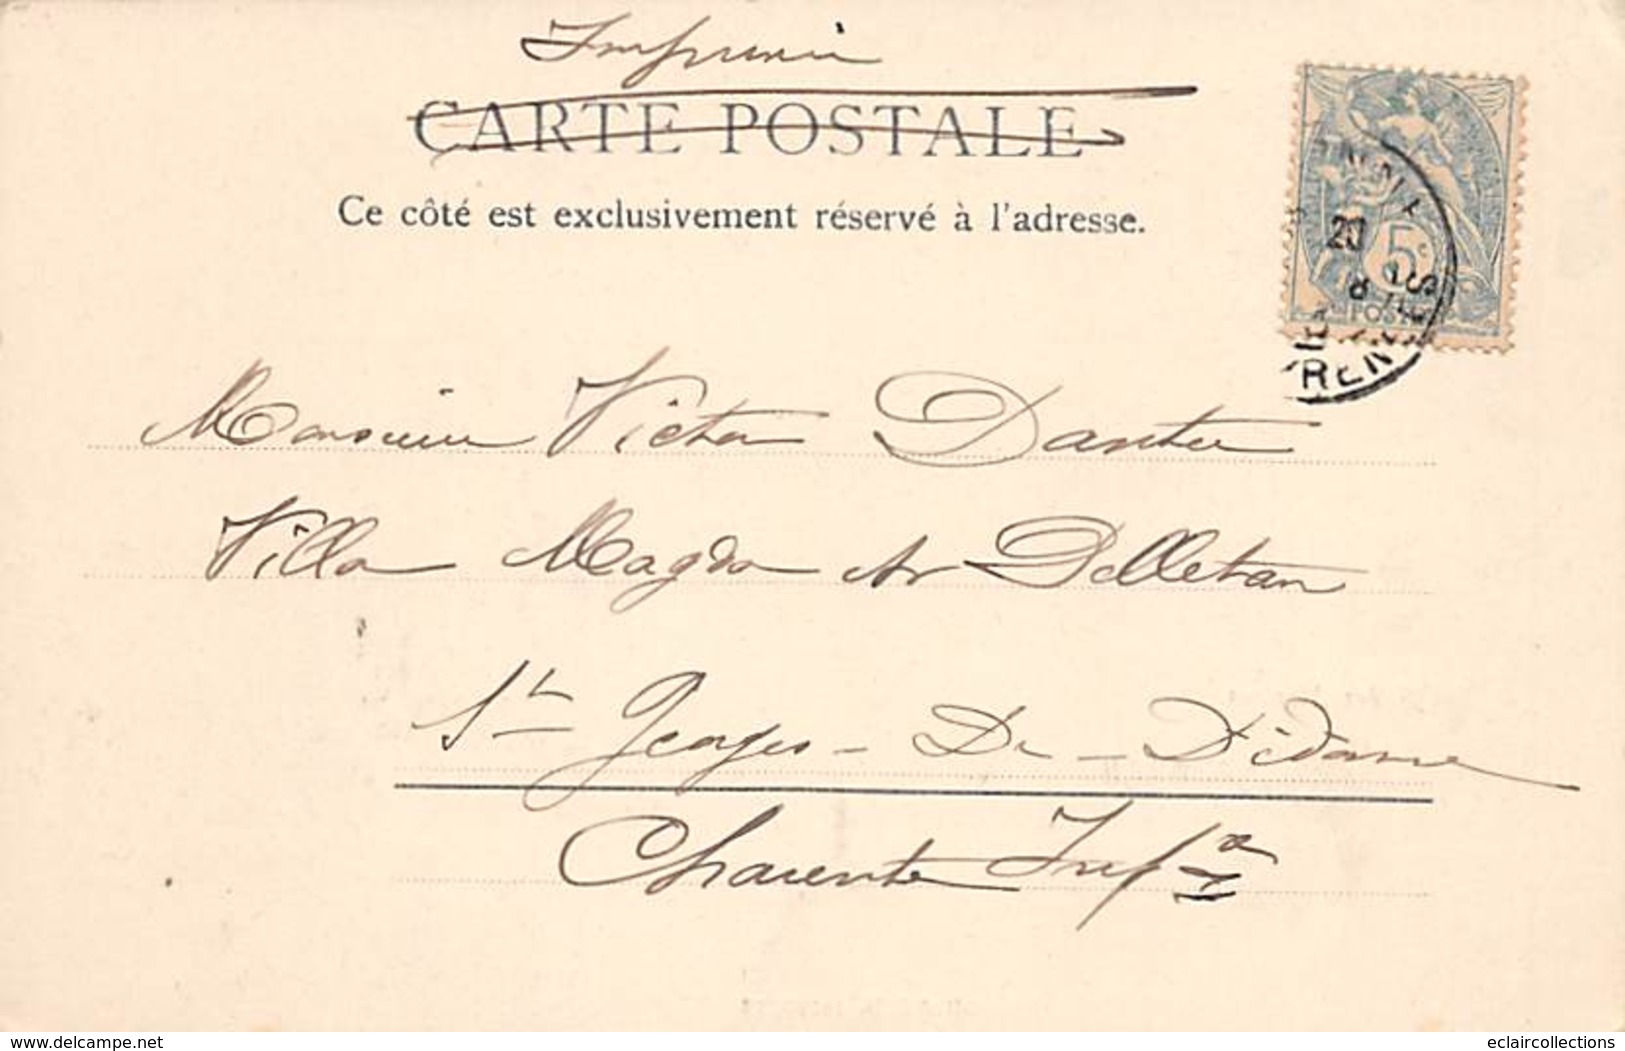 Imprimé
CARTE POSTALE
Ce côté est exclusivement réservé à l'adresse.
20
5c
POSTES
Monsieur Victor Dantu
Villa Magda Av Pelletan
St Georges - De - Didonne
Charente Infre
www.delcampe.net
eclaircollections